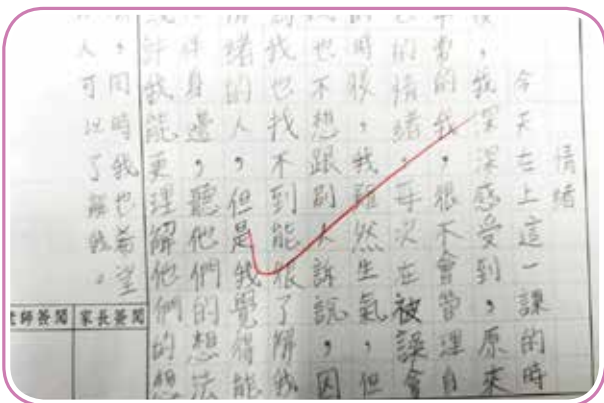 情緒
今天在上這一課的時
，我深深感受到，原來
常的我，很不會管理自
的情緒，每次在被誤會
時候，我雖然生氣，但
也不想跟別人訴說，因
我也找不到能很了解我
情緒的人，但是我覺得能
身邊，聽他們的想法
許我能更理解他們的想
，同時我也希望
人可以了解我。
家長簽閱
師簽閱